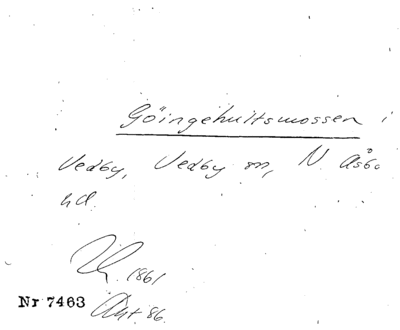 Göingehultsmossen i
Vedby, Vedby sn, N. Åsbo
hd.
1861
Nr 7463
Akt 86.